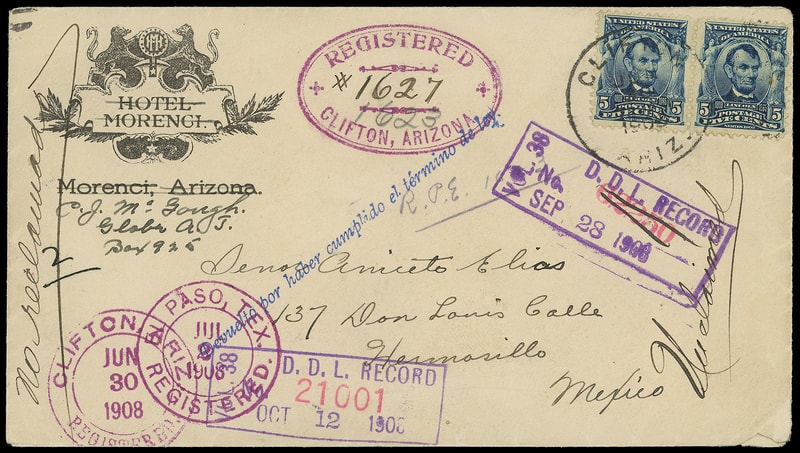 HOTEL
MORENCI.
Morenci, Arizona.
C. J. McGough.
Globe A. T.
Box 925
No reclamado
REGISTERED
# 1627
1623
CLIFTON, ARIZONA
UNITED STATES
5 5
POSTAGE
FIVE CENTS
UNITED STATES
5 5
POSTAGE
FIVE CENTS
ARIZ.
Devuelto por haber cumplido el término de ley.
R.P.E.
VOL. 38
No.
D. D. L. RECORD
SEP 28 1908
Unclaimed
Senor Aniceto Elias
137 Don Louis Calle
Hermorsillo
Mexico
CLIFTON
JUN
30
1908
REGISTERED
EL PASO, TEX.
1908
REGISTERED.
VOL. 38
D. D. L. RECORD
21001
OCT 12 1908